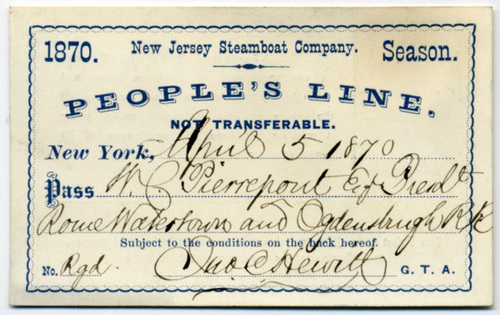 1870. New Jersey Steamboat Company. Season.
PEOPLE'S LINE.
NOT TRANSFERABLE.
New York, April 5 1870
Pass W. C. Pierrepont Esq Presdt
Rome Watertown and Ogdensburgh R R
Subject to the conditions on the back hereof.
No. Rgd. Jno C Hewitt G. T. A.